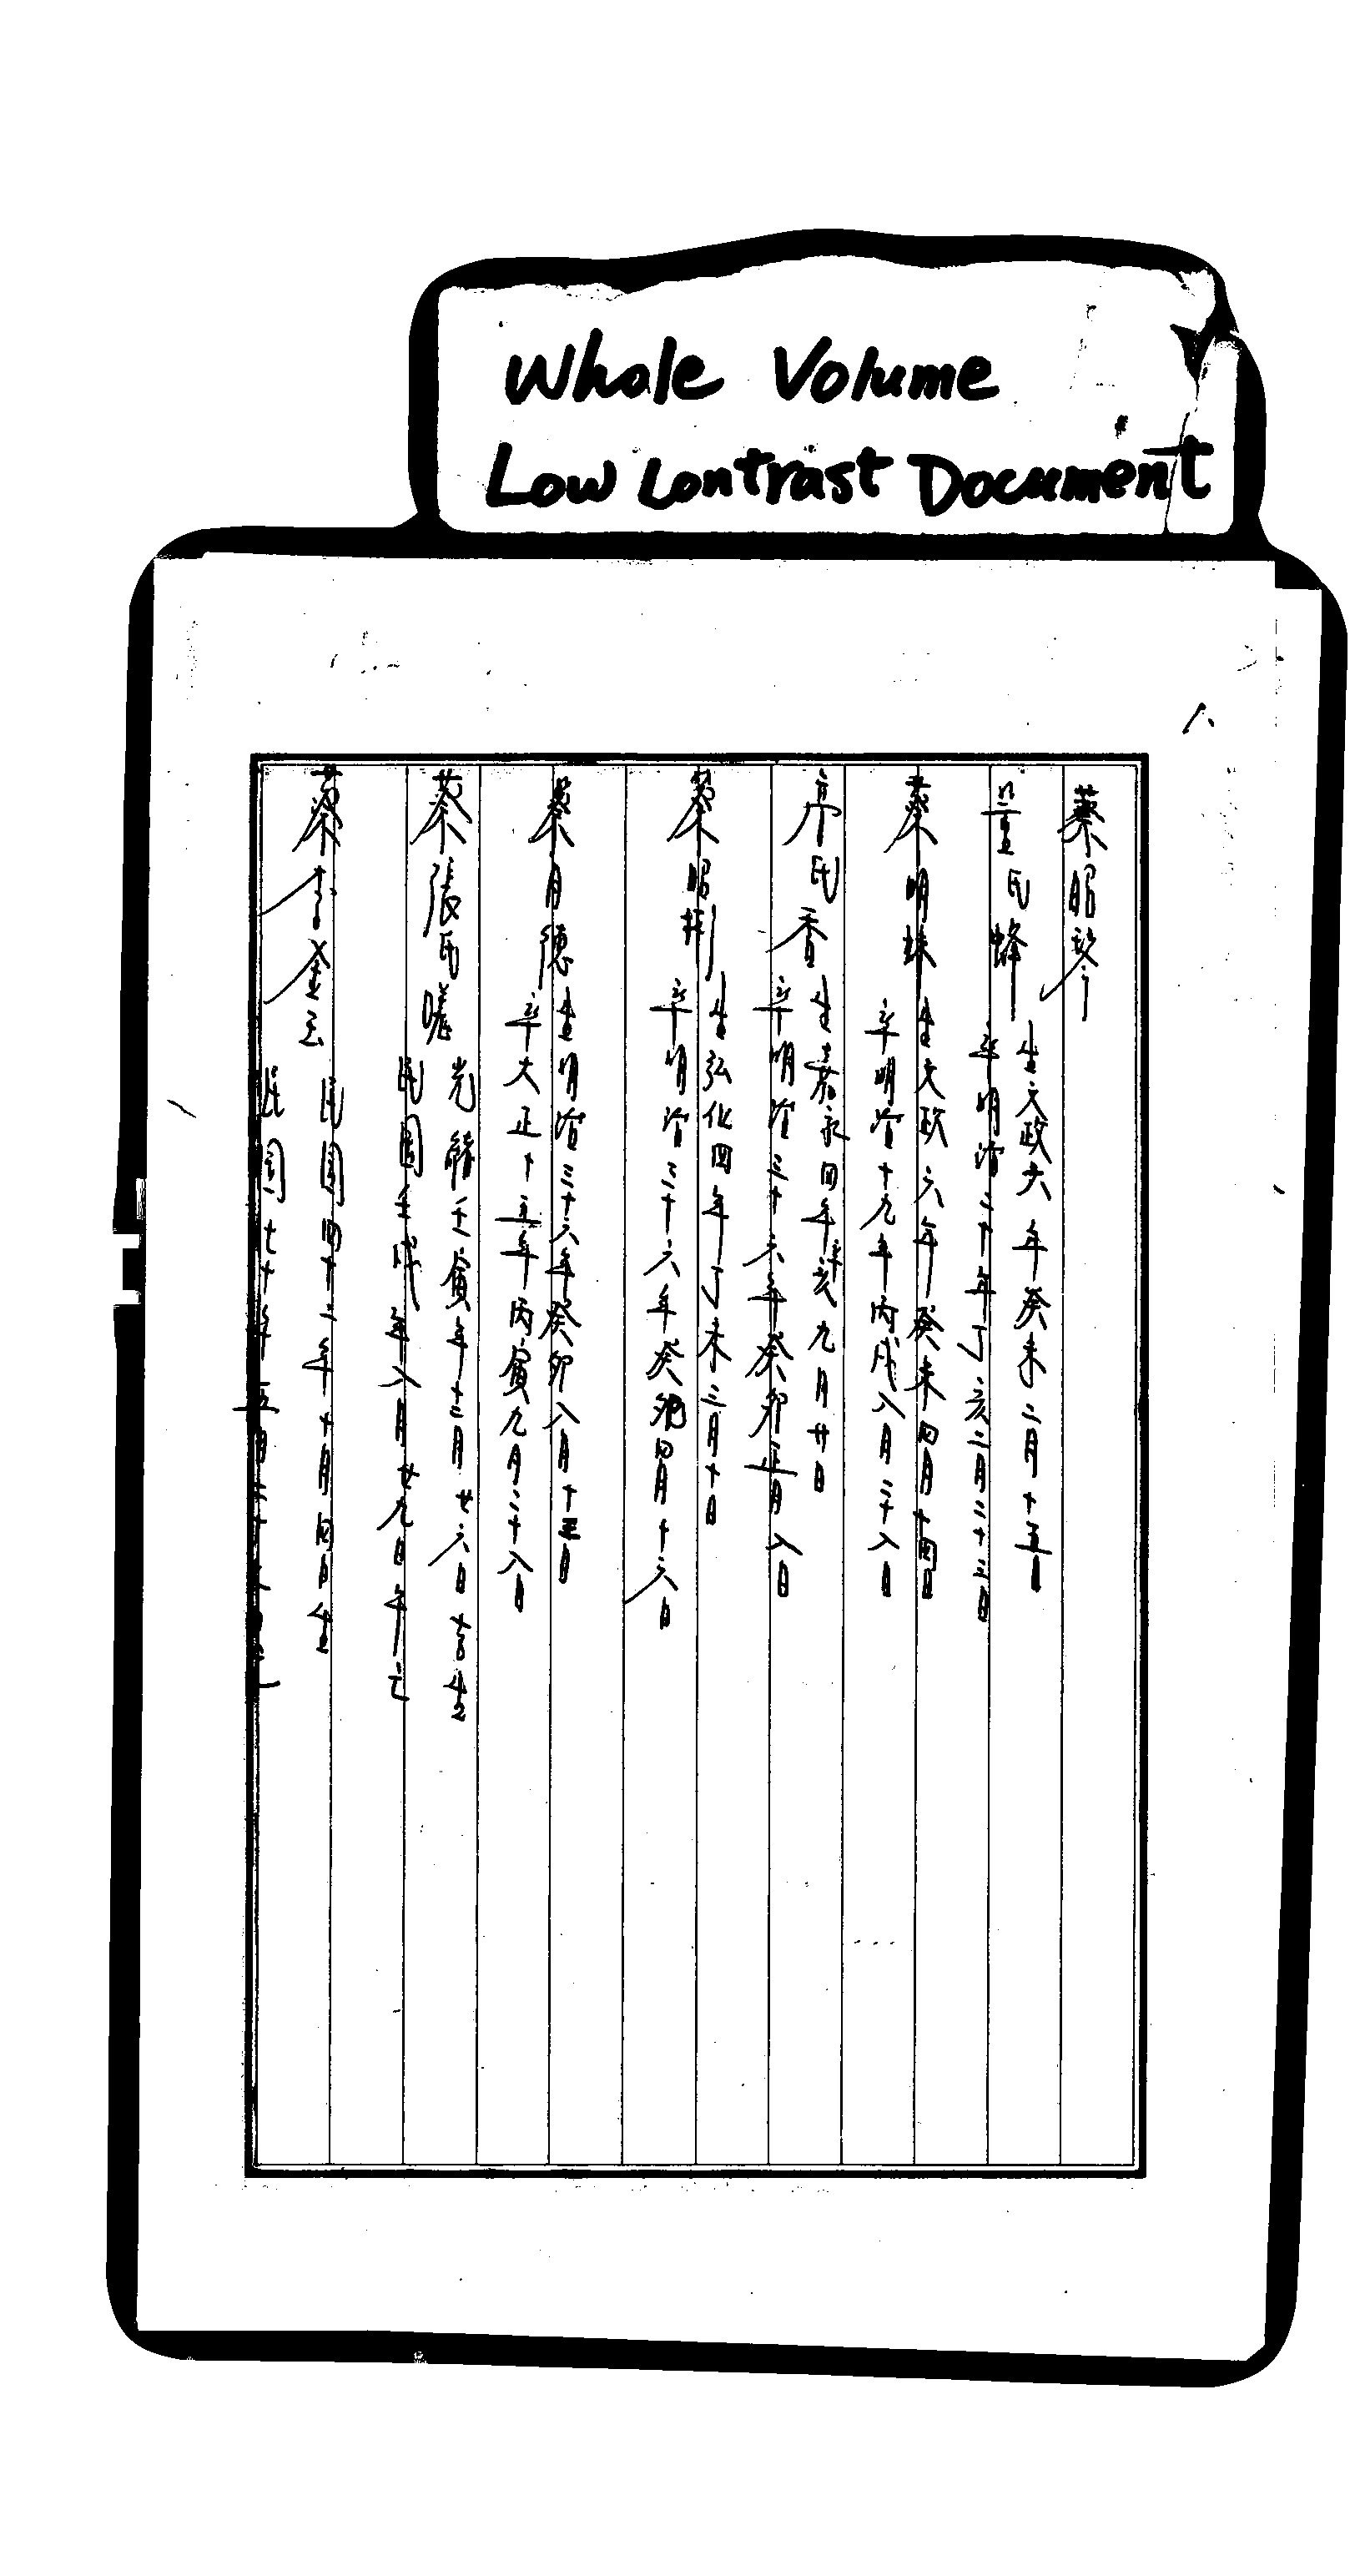 Whole Volume
Low Contrast Document
八
蔡昭琴
氏蜂
生文政六年癸未二月十五日
卒明治二十年丁亥二月二十三日
蔡明珠
生文政六年癸未四月十四日
卒明治十九年丙戌八月二十八日
氏香
生嘉永四年辛亥九月廿日
卒明治三十六年癸卯正月八日
蔡昭
生弘化四年丁未三月十日
卒明治三十六年癸卯四月十六日
蔡月德
生明治三十六年癸卯八月十五日
卒大正十五年丙寅九月二十八日
蔡張氏
光緒壬寅年十二月廿六日吉生
民國壬戌年八月廿九日午亡
蔡李金玉
民國四十二年十月四日生
民國七十年五月二十